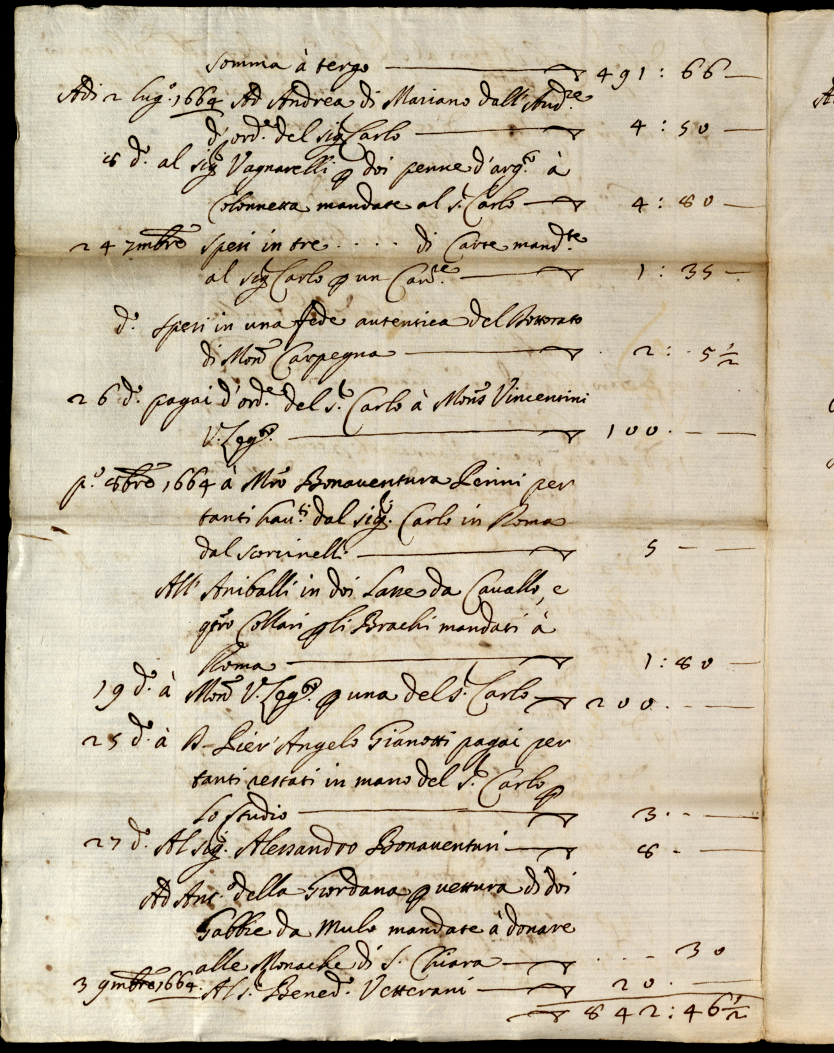 Somma à tergo — 491 : 66 —
Adi 2 lug.º 1664 Ad Andrea di Mariano dall'And.re
d'ord.e del sig. Carlo — 4 : 50 —
8 d.º al sig. Vagnarelli p doi penne d'arg.to à
Colonnetta mandate al s.r Carlo — 4 : 80 —
24 7mbre spesi in tre . . . . di Carte mand.te
al sig. Carlo p un — 1 : 35 —
d.º spesi in una fede autentica del Dottorato
di Mon.r Carpegna — 2 : 5½
26 d.º pagai d'ord.e del s.r Carlo à Mons.r Vincentini
V. Leg.to — 100 . —
p.º 8bre 1664 à Mro Bonaventura Perini per
tanti hau.ti dal sig. Carlo in Roma
dal — 5 - —
All' Aniballi in doi Lasse da Cavallo, e
qtro Collari p gli Brachi mandati à
Roma — 1 : 80 —
19 d.º à Mon.r V. Leg.to p una del s.r Carlo — 200 . —
25 d.º à D. Pier' Angelo Gianotti pagai per
tanti restati in mano del s.r Carlo p
Lo studio — 3 . —
27 d.º Al sig. Alessandro Bonaventuri — 8 - —
Ad Ant.º della Giordana p vettura di doi
Gabbie da Mulo mandate à donare
alle Monache di S. Chiara — . . - 30
3 9mbre 1664. Al s.r Bened.º Vetterani — 20 . —
842 : 46½